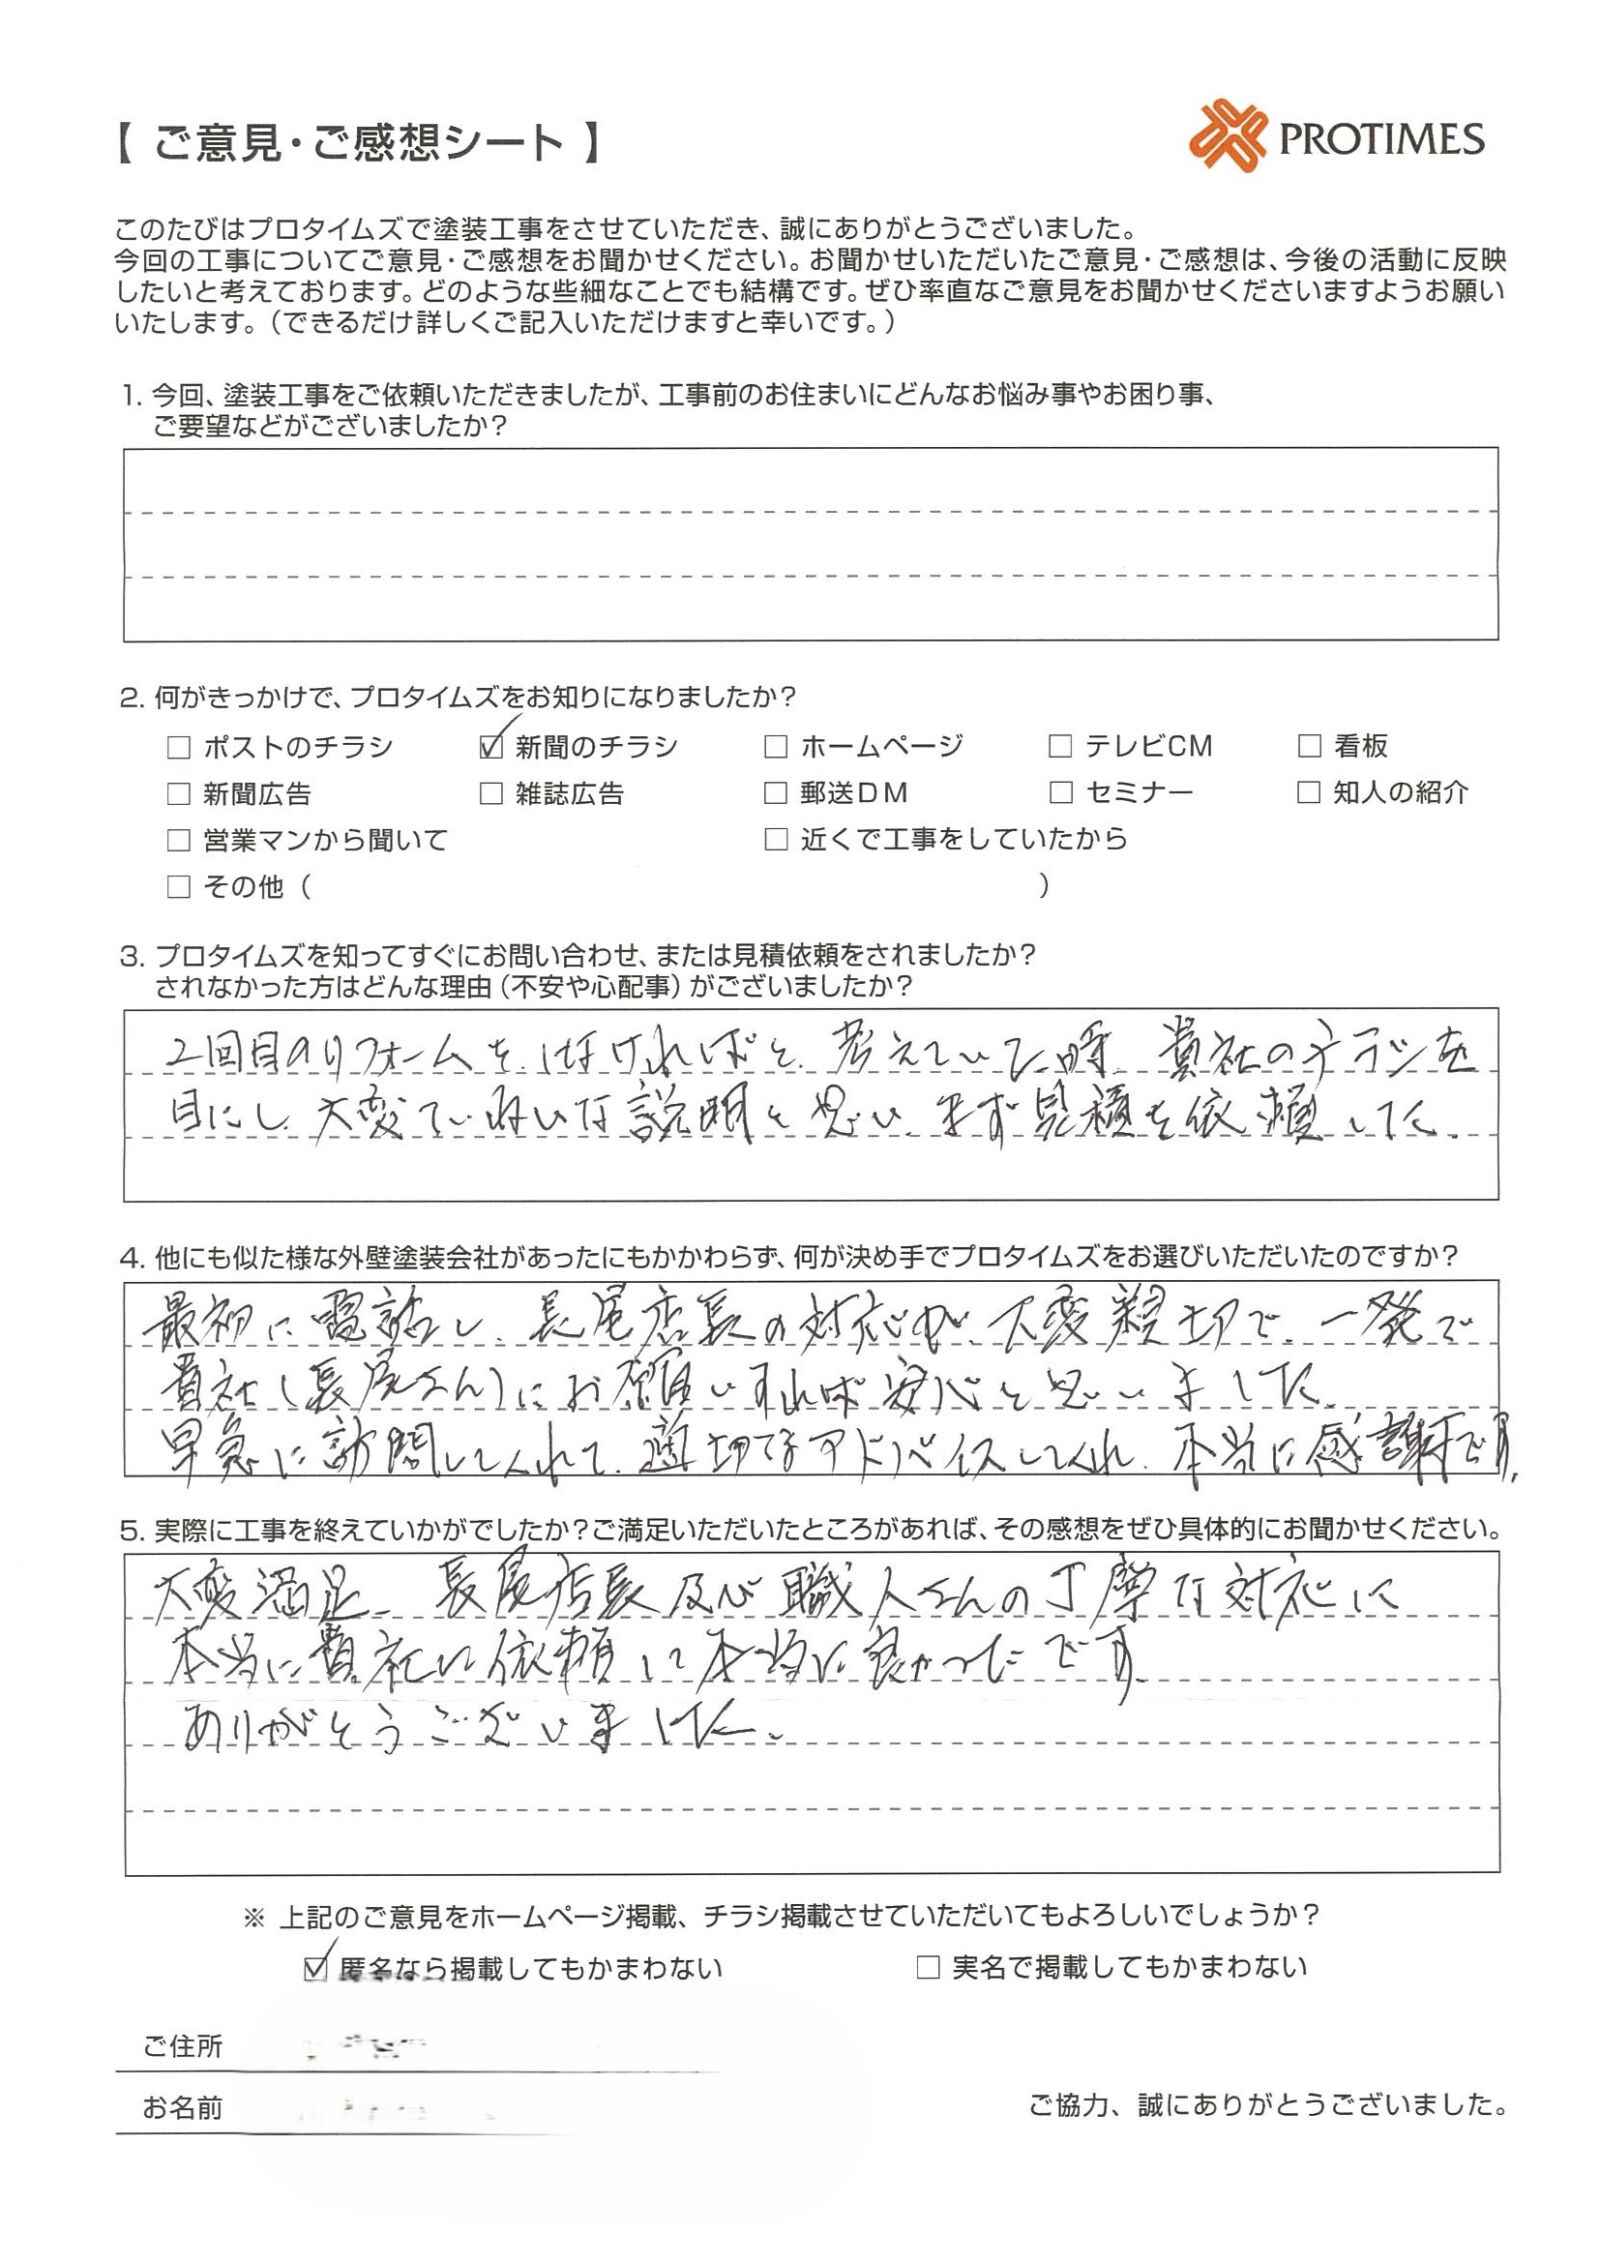 【 ご意見・ご感想シート 】
PROTIMES
このたびはプロタイムズで塗装工事をさせていただき、誠にありがとうございました。
今回の工事についてご意見・ご感想をお聞かせください。お聞かせいただいたご意見・ご感想は、今後の活動に反映
したいと考えております。どのような些細なことでも結構です。ぜひ率直なご意見をお聞かせくださいますようお願い
いたします。（できるだけ詳しくご記入いただけますと幸いです。）
1. 今回、塗装工事をご依頼いただきましたが、工事前のお住まいにどんなお悩み事やお困り事、
ご要望などがございましたか？
2. 何がきっかけで、プロタイムズをお知りになりましたか？
□ ポストのチラシ ☑ 新聞のチラシ □ ホームページ □ テレビCM □ 看板
□ 新聞広告 □ 雑誌広告 □ 郵送DM □ セミナー □ 知人の紹介
□ 営業マンから聞いて □ 近くで工事をしていたから
□ その他（ ）
3. プロタイムズを知ってすぐにお問い合わせ、または見積依頼をされましたか？
されなかった方はどんな理由（不安や心配事）がございましたか？
2回目のリフォームを、しなければと、考えていた時、貴社のチラシを
目にし、大変ていねいな説明と思い、まず見積を依頼した。
4. 他にも似た様な外壁塗装会社があったにもかかわらず、何が決め手でプロタイムズをお選びいただいたのですか？
最初に電話し、長尾店長の対応が、大変親切で、一発で
貴社（長尾さん）にお願いすれば安心と思いました。
早急に訪問してくれて、適切なアドバイスしてくれ、本当に感謝です。
5. 実際に工事を終えていかがでしたか？ご満足いただいたところがあれば、その感想をぜひ具体的にお聞かせください。
大変満足、長尾店長及び職人さんの丁寧な対応に
本当に貴社に依頼して本当に良かったです。
ありがとうございました。
※ 上記のご意見をホームページ掲載、チラシ掲載させていただいてもよろしいでしょうか？
☑ 匿名なら掲載してもかまわない □ 実名で掲載してもかまわない
ご住所
お名前
ご協力、誠にありがとうございました。